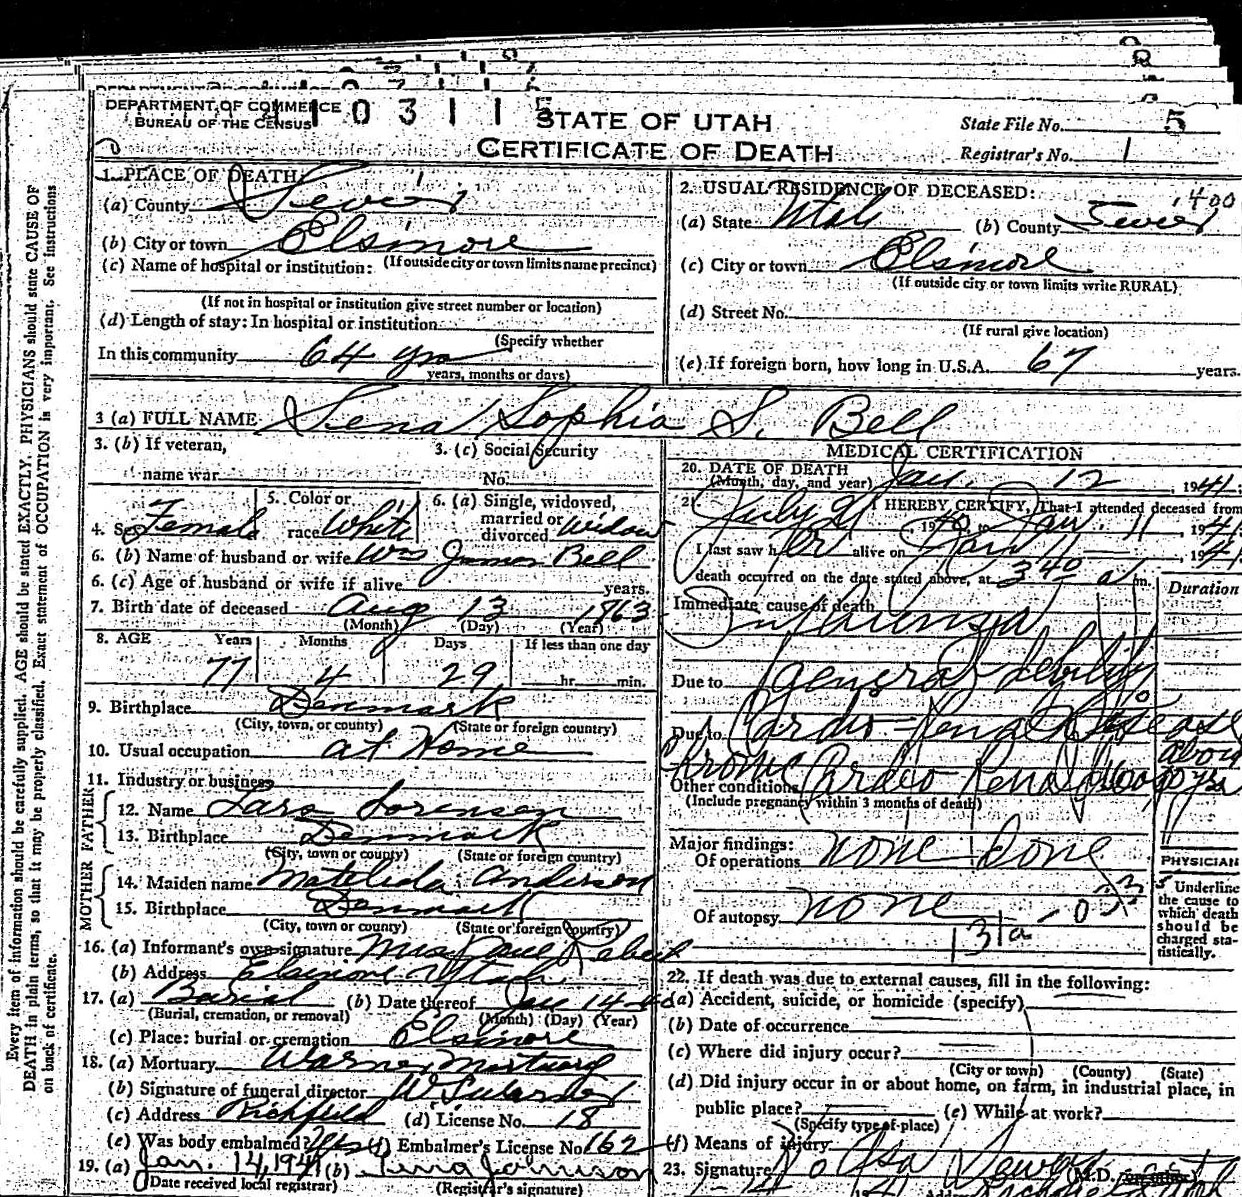 DEPARTMENT OF COMMERCE
BUREAU OF THE CENSUS
STATE OF UTAH
CERTIFICATE OF DEATH
State File No. 5
Registrar's No. 1
Every item of information should be carefully supplied. AGE should be stated EXACTLY. PHYSICIANS should state CAUSE OF
DEATH in plain terms, so that it may be properly classified. Exact statement of OCCUPATION is very important. See instructions
on back of certificate.
1. PLACE OF DEATH:
(a) County Sevier
(b) City or town Elsinore
(If outside city or town limits name precinct)
(c) Name of hospital or institution:
(If not in hospital or institution give street number or location)
(d) Length of stay: In hospital or institution
(Specify whether
In this community 64 yrs
years, months or days)
2. USUAL RESIDENCE OF DECEASED:
400
(a) State Utah (b) County Sevier
(c) City or town Elsinore
(If outside city or town limits write RURAL)
(d) Street No.
(If rural give location)
(e) If foreign born, how long in U.S.A. 67 years.
3 (a) FULL NAME Sena Sophia S. Bell
3. (b) If veteran,
name war
3. (c) Social Security
No.
4. Sex Female
5. Color or
race White
6. (a) Single, widowed,
married or
divorced Widow
6. (b) Name of husband or wife Wm James Bell
6. (c) Age of husband or wife if alive years.
7. Birth date of deceased Aug 13 1863
(Month) (Day) (Year)
8. AGE Years Months Days If less than one day
77 4 29 hr. min.
9. Birthplace Denmark
(City, town, or county) (State or foreign country)
10. Usual occupation at Home
11. Industry or business
FATHER
12. Name Lars Sorensen
13. Birthplace Denmark
(City, town or county) (State or foreign country)
MOTHER
14. Maiden name Anderson
15. Birthplace Denmark
(City, town or county) (State or foreign country)
16. (a) Informant's own signature Mrs
(b) Address Elsinore Utah
17. (a) Burial (b) Date thereof Jan 14-
(Burial, cremation, or removal) (Month) (Day) (Year)
(c) Place: burial or cremation Elsinore
18. (a) Mortuary Warner Mortuary
(b) Signature of funeral director
(c) Address Richfield (d) License No. 18
(e) Was body embalmed? Yes (f) Embalmer's License No 162
19. (a) Jan. 14, 1941 (b) Johnson
(Date received local registrar) (Registrar's signature)
MEDICAL CERTIFICATION
20. DATE OF DEATH
(Month, day, and year) Jan. 12, 1941
21. I HEREBY CERTIFY, That I attended deceased from
July 1940 to Jan. 11, 1941
I last saw her alive on Jan 11 1941
death occurred on the date stated above, at 3 40 a m.
Duration
Immediate cause of death
Influenza
Due to general debility
Due to Cardio-Renal Disease
Chronic Cardio Renal about
Other conditions 10 yrs
(Include pregnancy within 3 months of death)
Major findings:
Of operations none done
Of autopsy none
131a
PHYSICIAN
Underline
the cause to
which death
should be
charged sta-
tistically.
22. If death was due to external causes, fill in the following:
(a) Accident, suicide, or homicide (specify)
(b) Date of occurrence
(c) Where did injury occur?
(City or town) (County) (State)
(d) Did injury occur in or about home, on farm, in industrial place, in
public place? (e) While at work?
(Specify type of place)
(f) Means of injury
23. Signature M.D.